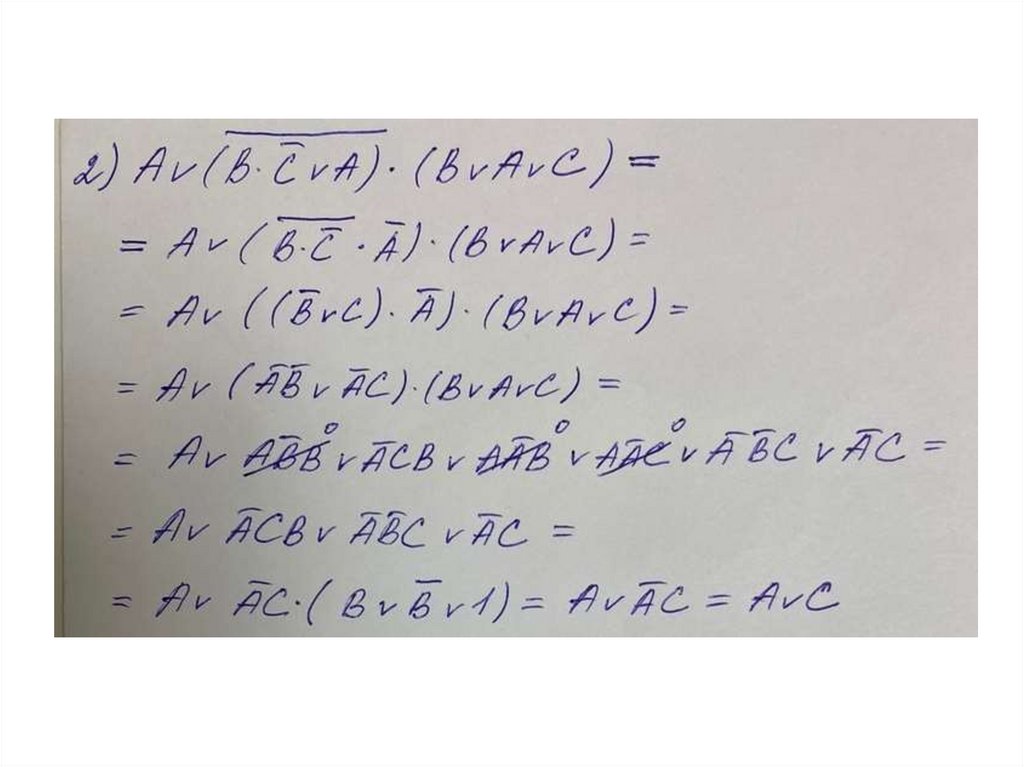 2) A∨(B·C̅∨A)̅·(B∨A∨C) =
= A∨(\overline{B·C̅}·A̅)·(B∨A∨C) =
= A∨((B̅∨C)·A̅)·(B∨A∨C) =
= A∨(A̅B̅∨A̅C)·(B∨A∨C) =
= A∨A̅B̅B⁰∨A̅CB∨AA̅B̅⁰∨AA̅C⁰∨A̅B̅C∨A̅C =
= A∨A̅CB∨A̅B̅C∨A̅C =
= A∨A̅C·(B∨B̅∨1) = A∨A̅C = A∨C